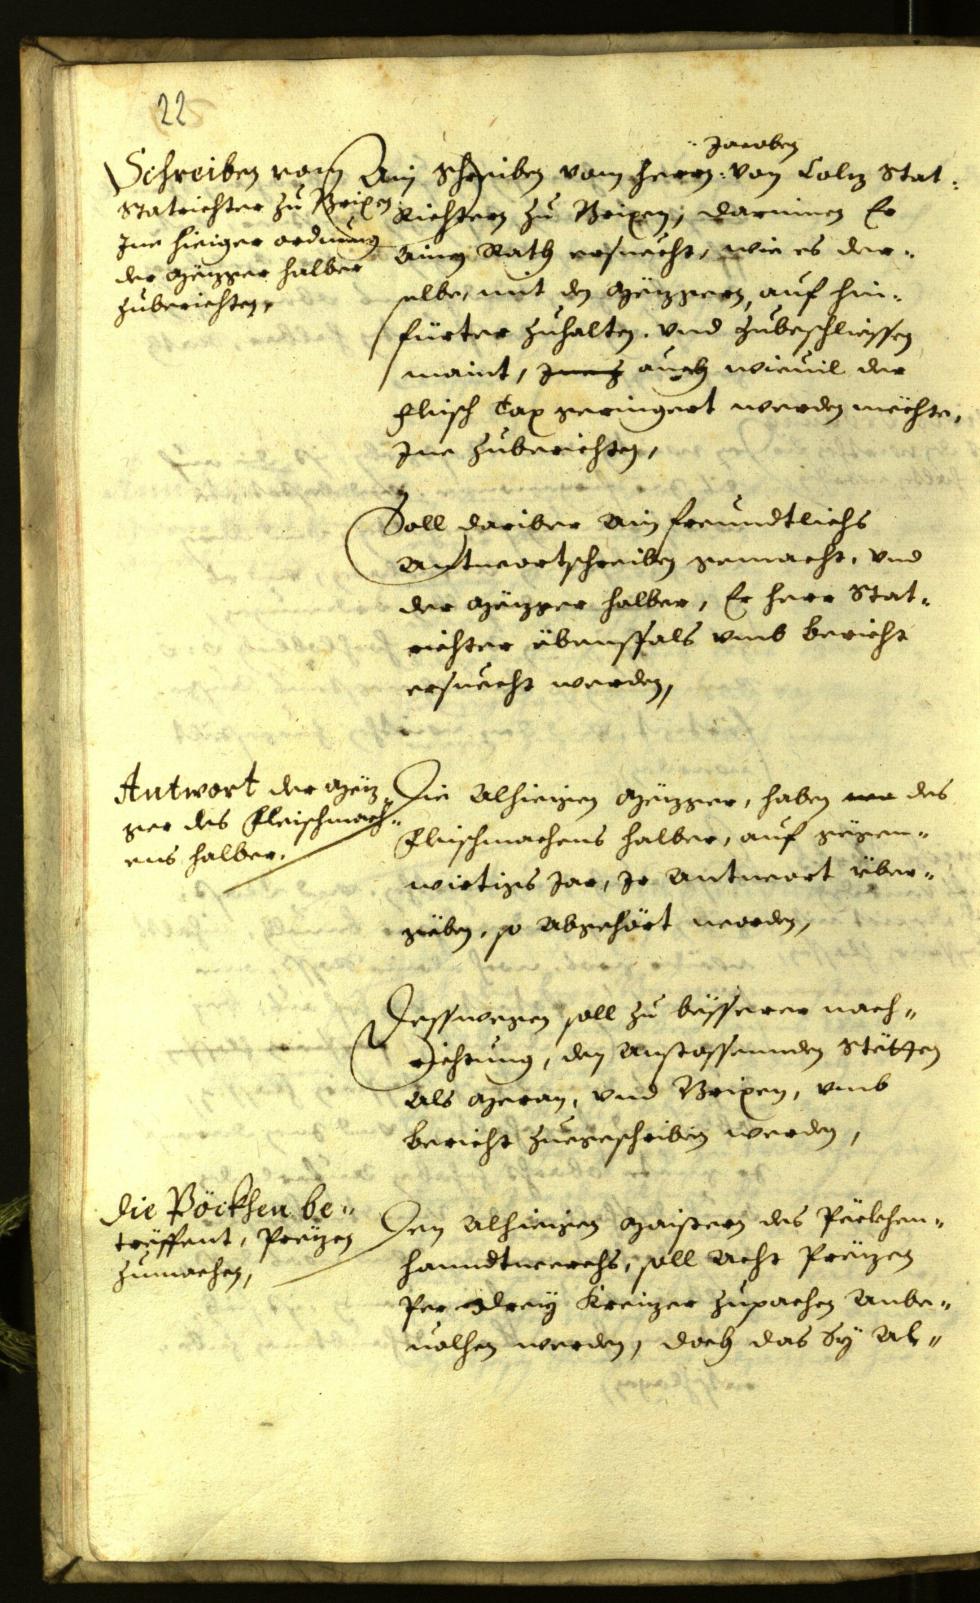 22
Schreiben vom
Statrichter zu Brixen
Ine hieiger ordnung
der Mezger halber
zuberichten,
Jacoben
Ain Schreiben vom Herrn: von Coln Stat=
Richtern zu Brixen, darinnen Er
ainen Rath ersuecht, wie es der=
selbe, mit den Mezgern, auf hin=
fürter zuhalten. vnd zubeschliessen
maint, auch wieuil der
fleisch Tax geringert werden mechte,
Ine zuberichten,
Soll dariber ain freundtlichs
Antwortschreiben gemacht, vnd
der Mezger halber, Er Herr Stat=
richter ebenfals vmb bericht
ersuecht werden,
Antwort der Mez=
ger des Fleischmach=
ens halber.
Die Alhieigen Mezger, haben des
Fleischmachens halber, auf gegen=
wirtigs Jar, Ir Antwort über=
geben, so Abgehört worden,
Desswegen soll zu besserer nach=
richtung, den Anstossennden Stetten
Als Meran, vnd Brixen, vmb
bericht zuegeschriben werden,
Die Böckhen be=
treffent, Prezen
zumachen,
Den Alhieigen Maistern des Peckhen=
hanndtwerchs, soll Acht Prezen
Per drey Kreizer zupachen Anbe=
uolhen werden, doch das Sy Al=